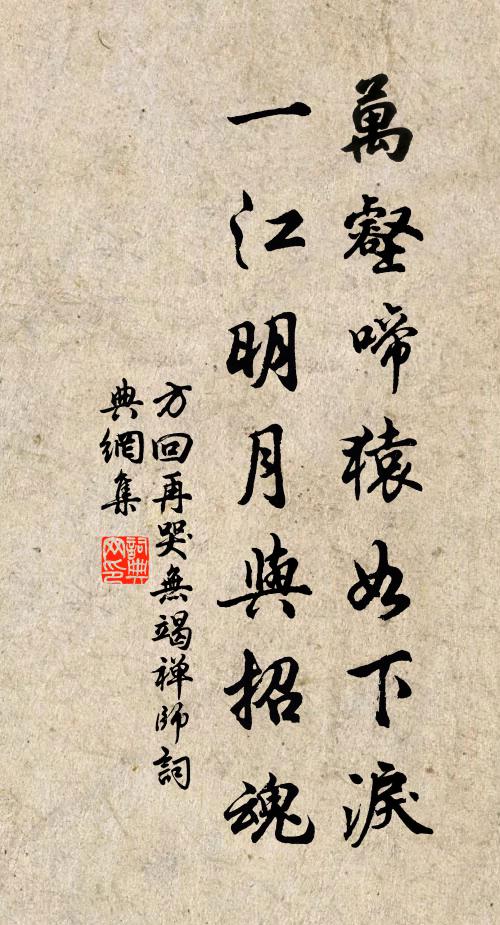 萬壑啼猿如下淚
一江明月與招魂
方回再哭無竭禅師詞
典網集
詞典
网印